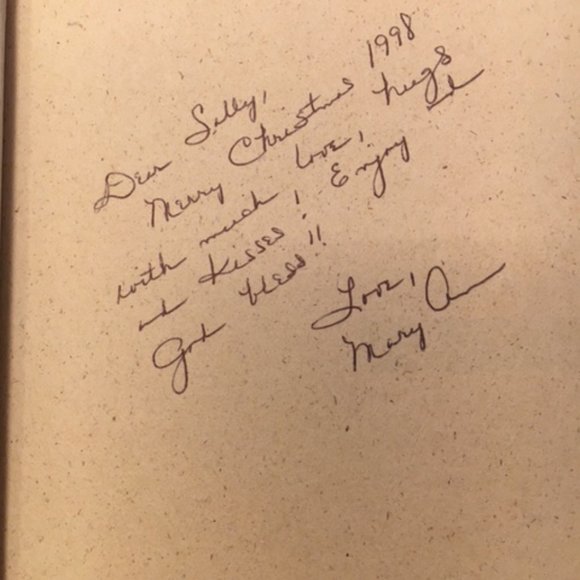 Dear Sally,
Merry Christmas 1998
with much love, hugs
and kisses! Enjoy &
God bless!!
Love,
Mary Ann